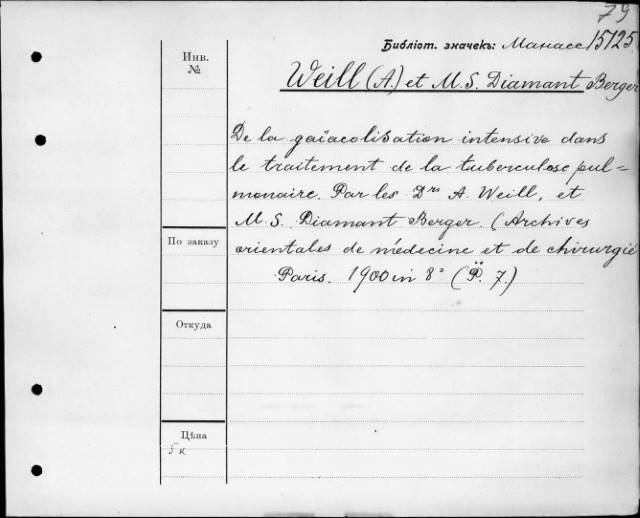 79
Библіот. значекъ: Манасс 15125
Инв.
№
Weill (A.) et M. S. Diamant Berger
De la gaïacolisation intensive dans
le traitement de la tuberculose pul=
monaire. Par les Drs A. Weill, et
M. S. Diamant Berger. (Archives
По заказу
orientales de médecine et de chirurgie
Paris. 1900 in 8° (P. 7.)
Откуда
Цѣна
5 к